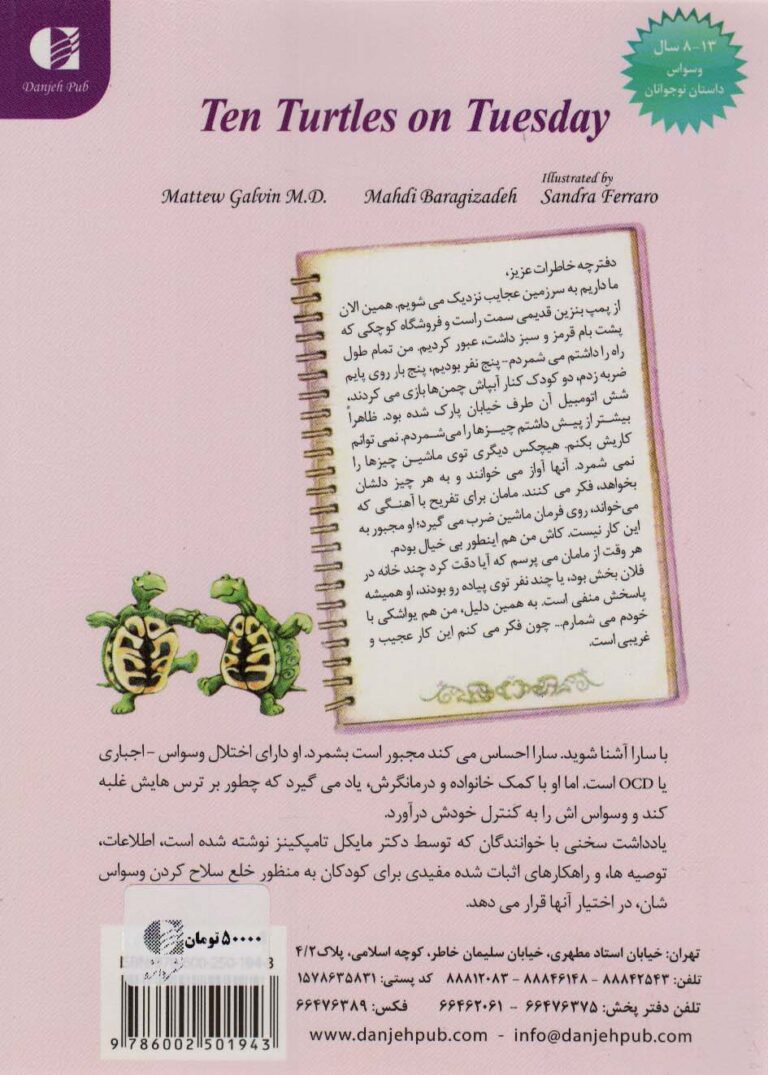 Danjeh Pub
۸-۱۳ سال
وسواس
داستان نوجوانان
Ten Turtles on Tuesday
Mattew Galvin M.D.
Mahdi Baragizadeh
Illustrated by
Sandra Ferraro
دفترچه خاطرات عزیز،
ما داریم به سرزمین عجایب نزدیک می شویم. همین الان
از پمپ بنزین قدیمی سمت راست و فروشگاه کوچکی که
پشت بام قرمز و سبز داشت، عبور کردیم. من تمام طول
راه را داشتم می شمردم- پنج نفر بودیم، پنج بار روی پایم
ضربه زدم، دو کودک کنار آبپاش چمن‌ها بازی می کردند،
شش اتومبیل آن طرف خیابان پارک شده بود. ظاهراً
بیشتر از پیش داشتم چیزها را می‌شمردم. نمی توانم
کاریش بکنم. هیچکس دیگری توی ماشین چیزها را
نمی شمرد. آنها آواز می خوانند و به هر چیز دلشان
بخواهد، فکر می کنند. مامان برای تفریح با آهنگی که
می‌خواند، روی فرمان ماشین ضرب می گیرد؛ او مجبور به
این کار نیست. کاش من هم اینطور بی خیال بودم.
هر وقت از مامان می پرسم که آیا دقت کرد چند خانه در
فلان بخش بود، یا چند نفر توی پیاده رو بودند، او همیشه
پاسخش منفی است. به همین دلیل، من هم یواشکی با
خودم می شمارم... چون فکر می کنم این کار عجیب و
غریبی است.
با سارا آشنا شوید. سارا احساس می کند مجبور است بشمرد. او دارای اختلال وسواس - اجباری
یا OCD است. اما او با کمک خانواده و درمانگرش، یاد می گیرد که چطور بر ترس هایش غلبه
کند و وسواس اش را به کنترل خودش درآورد.
یادداشت سخنی با خوانندگان که توسط دکتر مایکل تامپکینز نوشته شده است، اطلاعات،
توصیه ها، و راهکارهای اثبات شده مفیدی برای کودکان به منظور خلع سلاح کردن وسواس
شان، در اختیار آنها قرار می دهد.
۵۰۰۰۰ تومان
تهران: خیابان استاد مطهری، خیابان سلیمان خاطر، کوچه اسلامی، پلاک۴/۲
تلفن: ۸۸۸۴۲۵۴۳ - ۸۸۸۴۶۱۴۸ - ۸۸۸۱۲۰۸۳ کد پستی: ۱۵۷۸۶۳۵۸۳۱
تلفن دفتر پخش: ۶۶۴۷۶۳۷۵ - ۶۶۴۶۲۰۶۱ فکس: ۶۶۴۷۶۳۸۹
www.danjehpub.com - info@danjehpub.com
9 786002 501943